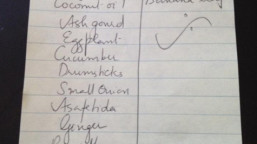 Coconut oil
Ash gourd
Eggplant
Cucumber
Drumsticks
Small Onion
Asafetida
Ginger
Banana